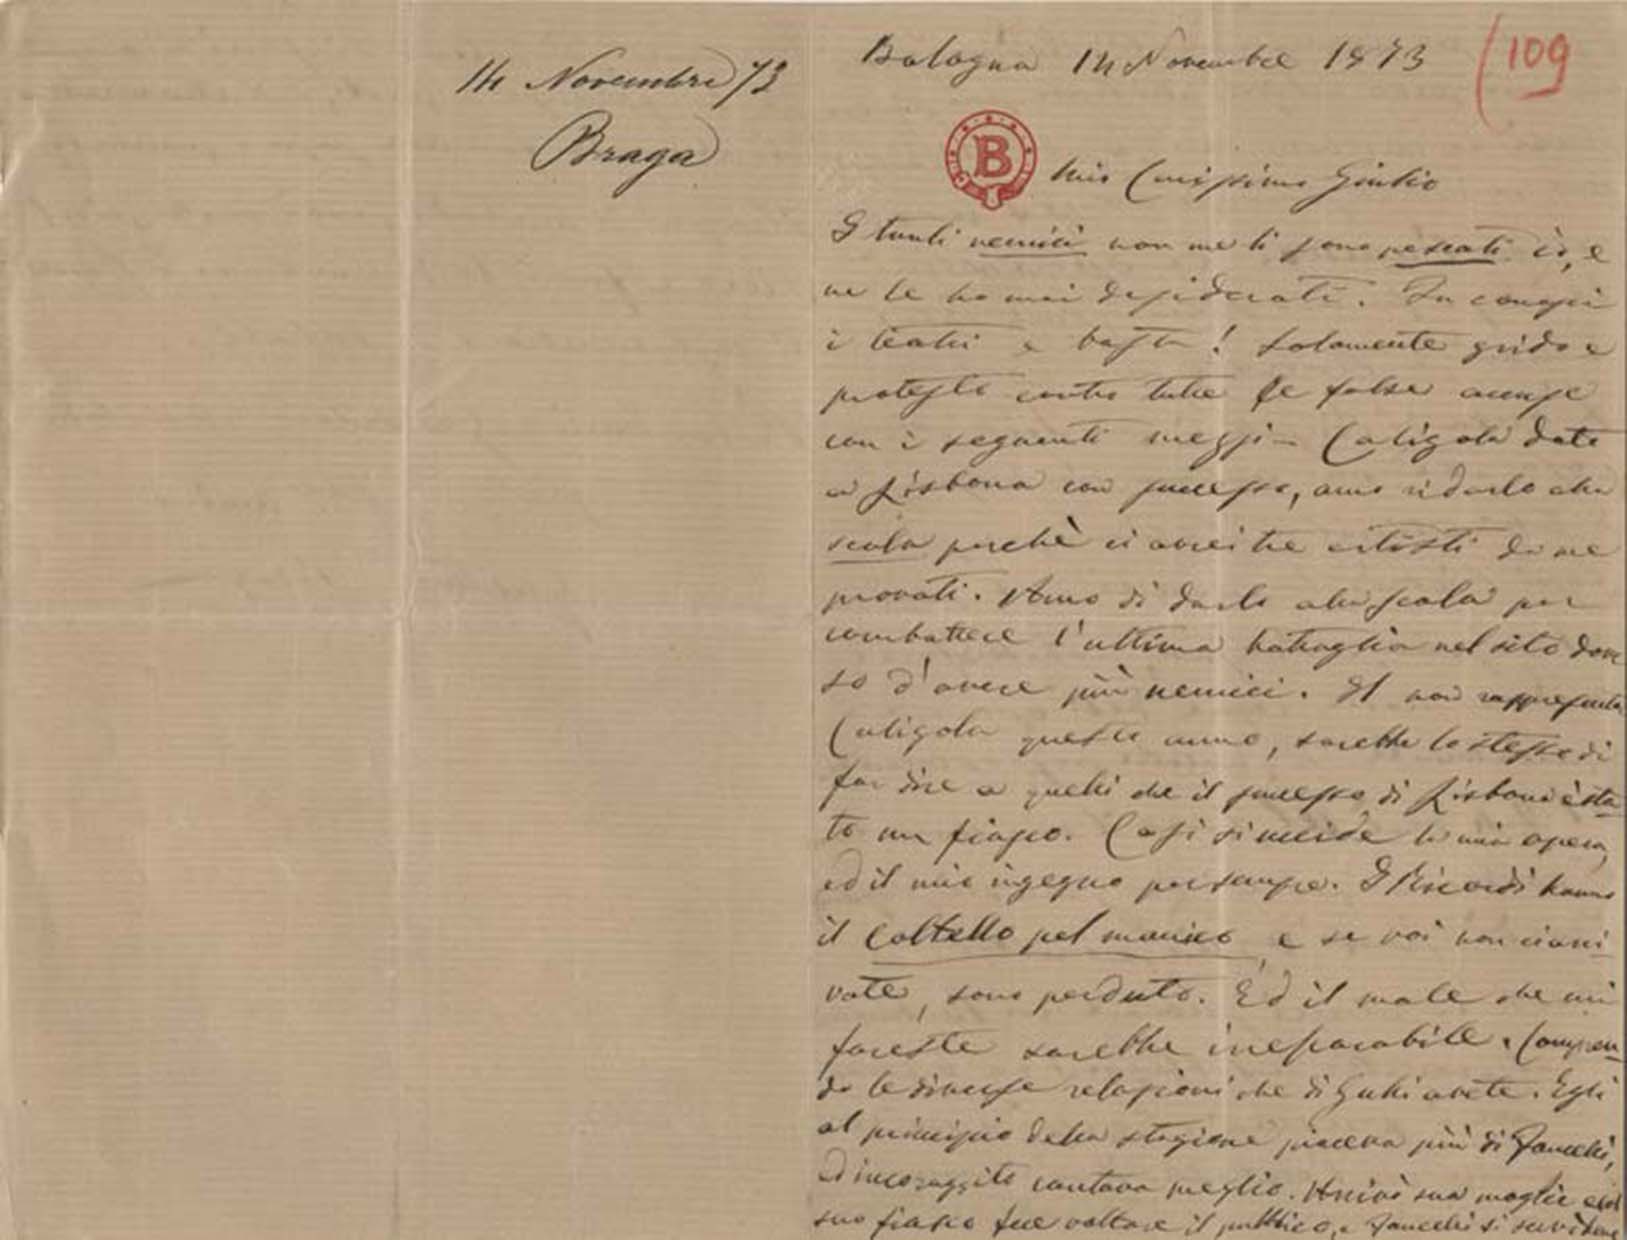 14 Novembre 73
Braga
Bologna 14 Novembre 1873
109
B
Mio Carissimo Giulio
I tanti nemici non me li sono pescati io, e
ne le ho mai desiderati. Tu conosci
i teatri e basta! Solamente grido e
protesto contro tutte le false accuse
con i seguenti mezzi – Caligola dato
a Lisbona con successo, amo ridarlo alla
scala perchè ci avrei tre artisti da me
provati. Amo di darlo alla Scala per
combattere l'ultima battaglia nel sito dove
so d'avere più nemici. Il non
Caligola questo anno, sarebbe lo stesso di
far dire a quelli che il successo di Lisbona è sta
to un fiasco. Così si uccide la mia opera,
ed il mio ingegno per sempre. I Ricordi hanno
il Coltello pel manico e se voi non
vate, sono perduto. Ed il male che mi
fareste sarebbe irreparabile. Compren
do le diverse relazioni che di avete. Egli
al principio della stagione piaceva più di Fancelli,
ed incoraggito cantava meglio. Arrivò sua moglie ed il
suo fiasco fece voltare il pubblico, e Fancelli si